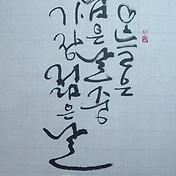 오늘은
남은날중
가장젊은날